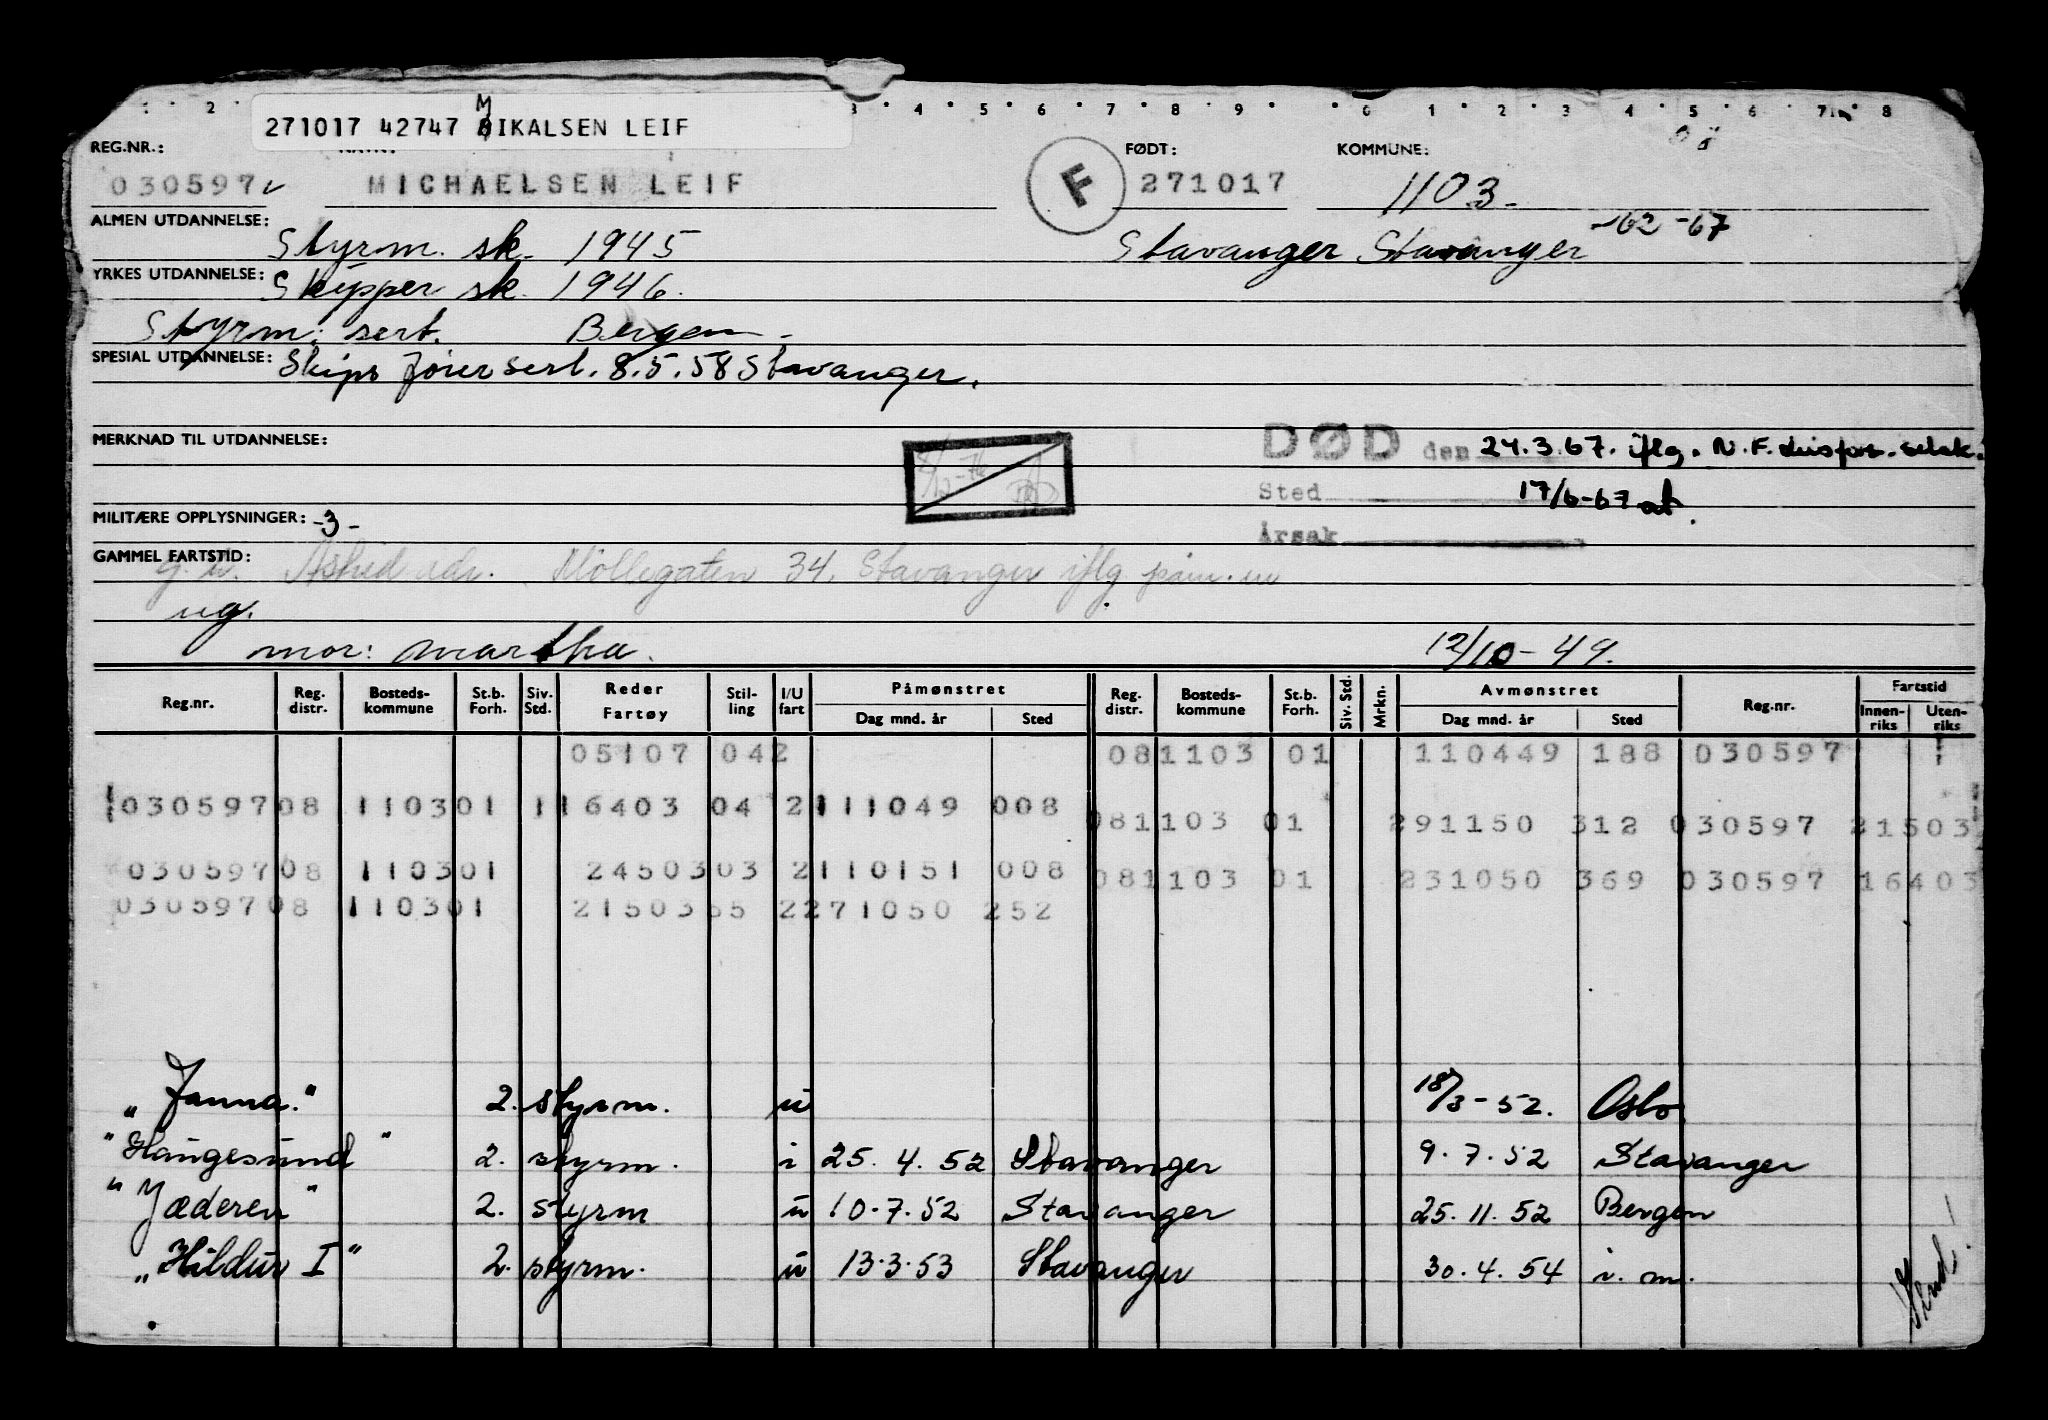 1 2 3 4 5 6 7 8 9 0 1 2 3 4 5 6 7 8
271017 42747 MIKALSEN LEIF
REG.NR.: FØDT: KOMMUNE:
030597 MICHAELSEN LEIF F 271017 1103-
ALMEN UTDANNELSE: Styrm. sk. 1945 Stavanger Stavanger -62-67
YRKES UTDANNELSE: Skipper sk. 1946.
Styrm. sert. Bergen -
SPESIAL UTDANNELSE: Skipsførersert. 8.5.58 Stavanger.
MERKNAD TIL UTDANNELSE: DØD den 24.3.67. iflg. N.F.
Sted 17/6-67
MILITÆRE OPPLYSNINGER: -3- Årsak
GAMMEL FARTSTID: g.u. Møllegaten 34, Stavanger iflg.
ug.
mor: Martha. 12/10-49.
Reg.nr. Reg. distr. Bosteds-kommune St.b. Forh. Siv. Std. Reder Fartøy Stil-ling I/U fart Påmønstret Dag mnd. år Sted Reg. distr. Bosteds-kommune St.b. Forh. Siv. Std. Mrkn. Avmønstret Dag mnd. år Sted Reg.nr. Fartstid Innen-riks Uten-riks
05107 042 081103 01 110449 188 030597
03059708 110301 116403 04 2111049 008
081103 01 291150 312 030597 21503
03059708 110301 2450303 2110151 008
081103 01 231050 369 030597 16403
03059708 110301 2150355 2271050 252
"Janna." 2. styrm. u 18/3-52. Oslo
"Haugesund" 2. styrm. i 25.4.52 Stavanger 9.7.52 Stavanger
"Jæderen" 2. styrm u 10.7.52 Stavanger 25.11.52 Bergen
"Hildur I" 2. styrm. u 13.3.53 Stavanger 30.4.54 i.m.